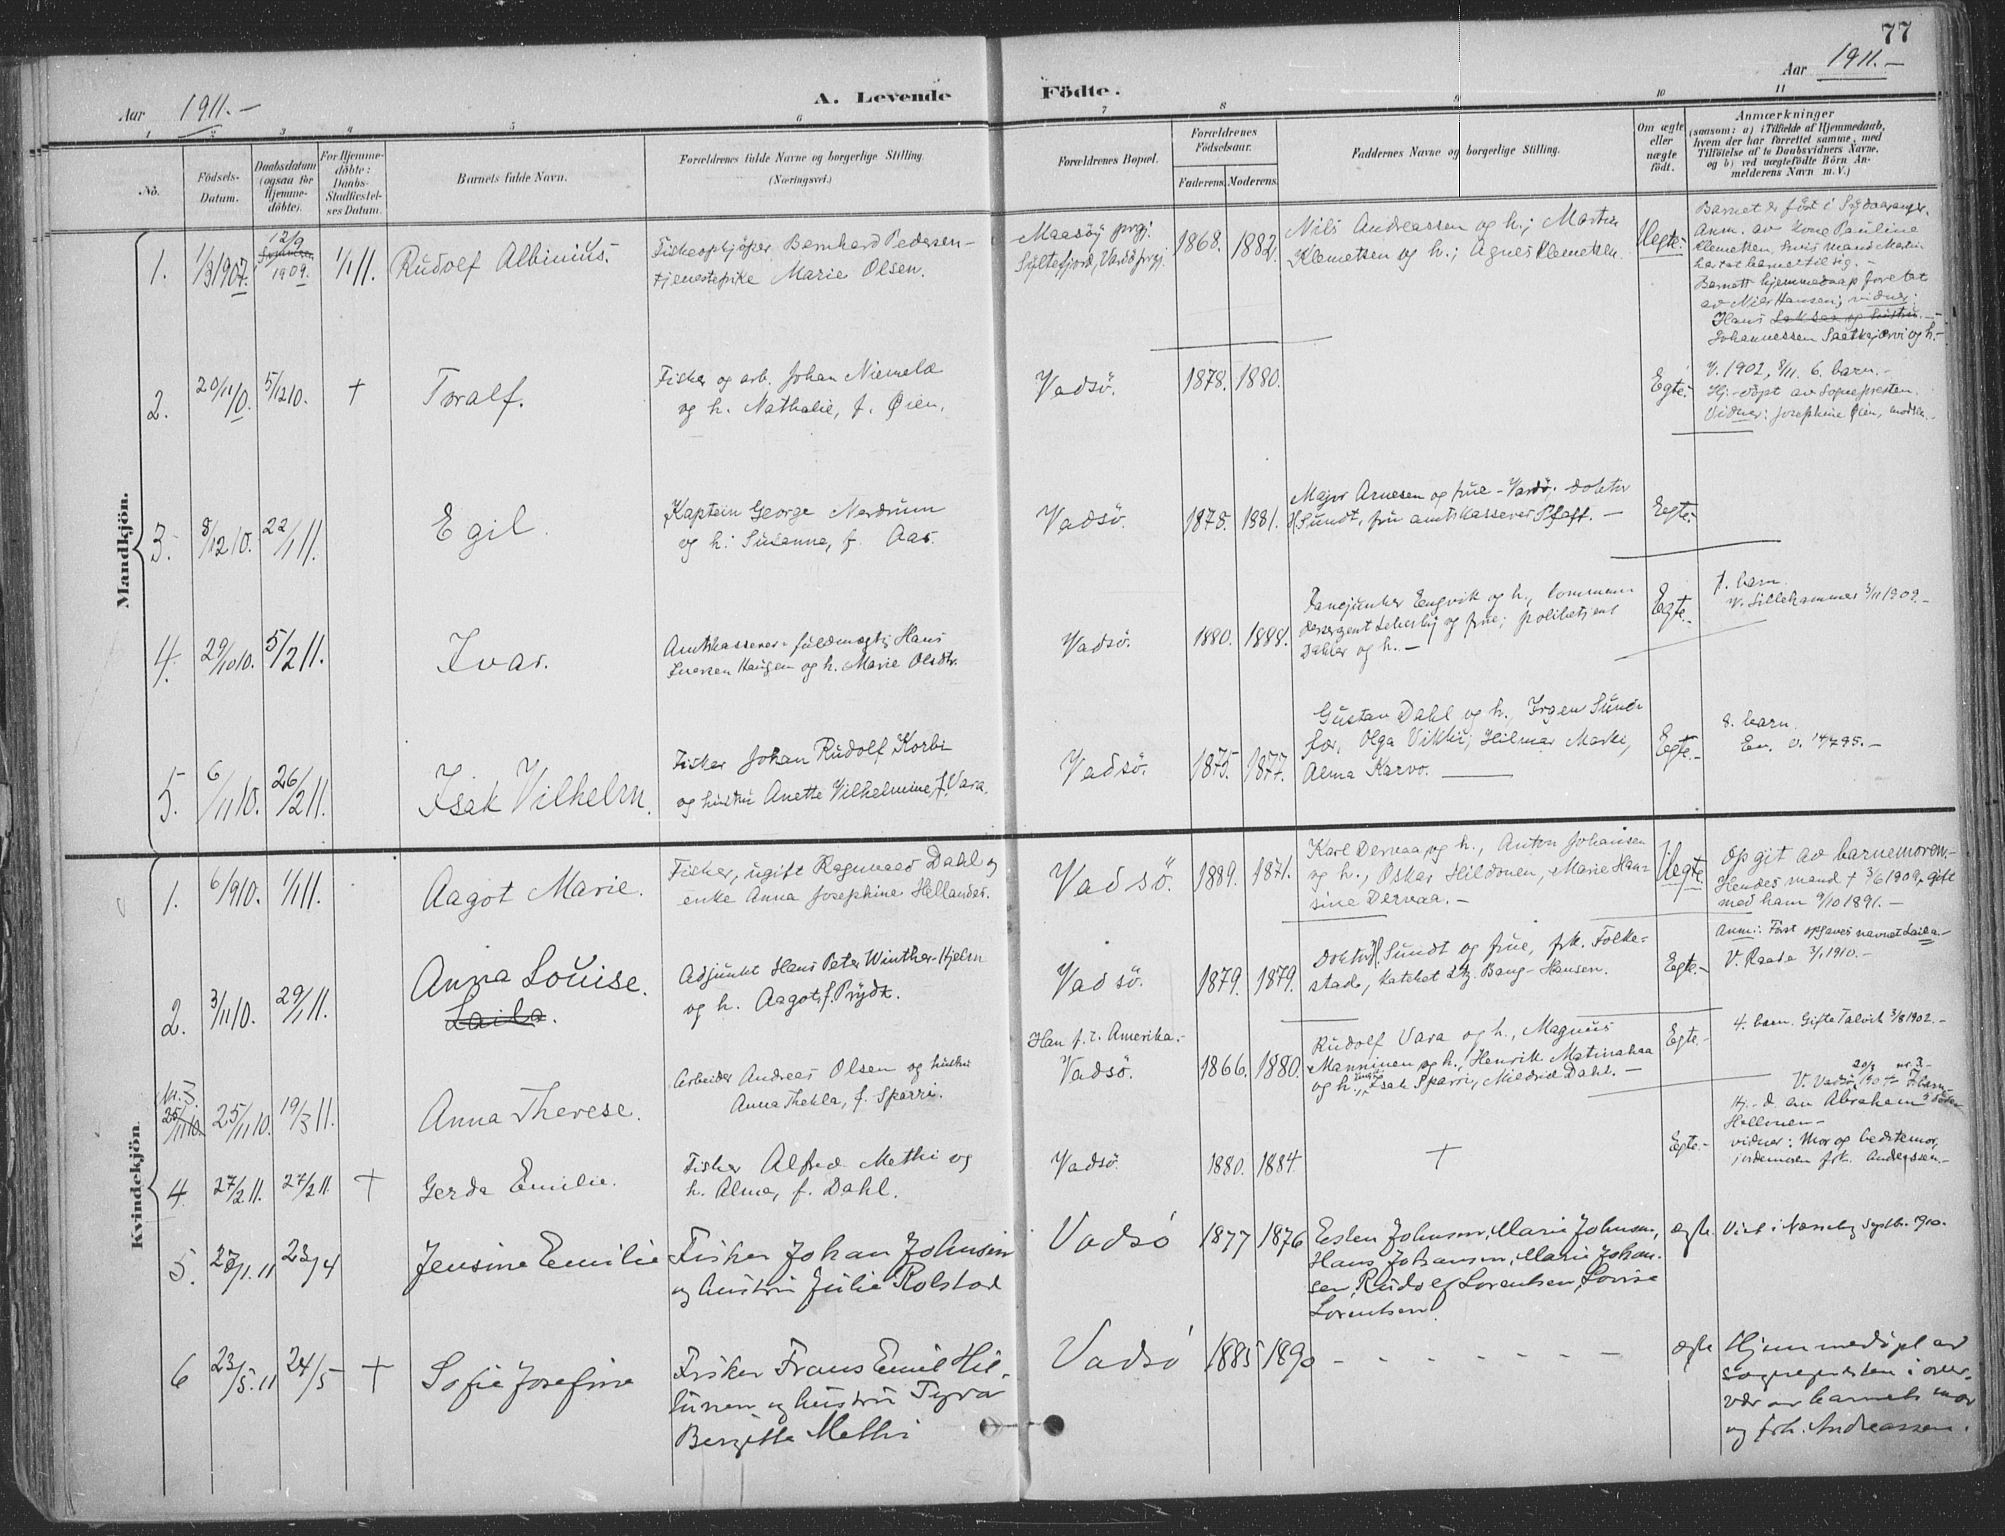 77
Aar 1911.-
A. Levende Födte.
Aar 1911.-
1 2 3 4 5 6 7 8 9 10 11
No.
Födsels-
Datum.
Daabsdatum
(ogsaa for
Hjemme-
döbte).
For Hjemme-
döbte:
Daabs-
Stadfæstel-
ses Datum.
Barnets fulde Navn.
Forældrenes fulde Navne og borgerlige Stilling.
(Næringsvei.)
Forældrenes Bopæl.
Forældrenes
Födselsaar.
Faderens. Moderens.
Faddernes Navne og borgerlige Stilling.
Om ægte
eller
uægte
födt.
Anmærkninger
(saasom: a) i Tilfælde af Hjemmedaab,
hvem der har forrettet samme, med
Tilföielse af to Daabsvidners Navne,
og b) ved uægtefödte Börn An-
melderens Navn m. V.)
Mandkjön.
1. 1/3 1907. 12/9 1909. 1/1 11. Rudolf Albinius.
Fiskeopkjöper Bernhard Pedersen -
Tjenestepike Marie Olsen.
Maasöy prgj.
Syltefjord, Vardö prgj.
1868. 1882.
Nils Andreassen og h.; Martin
Klemetsen og h.; Agnes Klemetsen.
Uegte.
Barnet er föst i Sydvaranger.
Anm. av kone Pauline
Klemetsen, hvis mand Martin
har tat barnet til sig. -
Barnets hjemmedaap foretat
av Nils Hansen; vidner:
Hans
Johannessen og h. -
2. 20/11 10. 5/12 10. + Toralf.
Fisker og arb. Johan Niemelæ
og h. Nathalie, f. Øien.
Vadsö. 1878. 1880. Egte.-
V. 1902, 6. barn. -
Hj.-döpt av Sognepresten.
Vidner: Josephine Øien,
3. 8/12 10. 22/1 11. Egil.
Kaptein George Nerdrum
og h. Susanne, f. Aas.
Vadsö. 1875. 1881.
Major Arnesen og frue - Vardö; doktor
H Sundt, fru amtskasserer Pfaff. -
Egte.-
4. 29/10 10. 5/2 11. Ivar.
Amtskasserer-fuldmægtig Hans
Iversen Haugen og h. Marie Olsdtr.
Vadsö. 1880. 1888.
Fanejunker Engvik og h.,
sergent Lebesby og frue; politibetjent
Dahler og h. -
Egte.-
1. barn.
V. Lillehammer 3/11 1909. -
5. 6/11 10. 26/2 11. Isak Vilhelm.
Fisker Johan Rudolf Korbi
og hustru Anette Vilhelmine, f. Vara.
Vadsö. 1875. 1877.
Gustav Dahl og h., Irgen Sund-
for, Olga Vikki; Hilmar Marki,
Alma Karvo. -
Egte.-
8. barn.
Kvindekjön.
1. 6/9 10. 1/1 11. Aagot Marie.
Fisker, ugift Ragnvald Dahl og
enke Anna Josephine Hellander.
Vadsö. 1889. 1871.
Karl Dervaa og h., Anton Johansen
og h., Oskar Hildonen, Marie Han-
sine Dervaa. -
Uegte
Opgit av barnemoren. -
Hendes mand + 3/6 1909, gift
med ham 9/10 1891. -
2. 3/11 10. 29/1 11. Anna Louise.
Laila.
Adjunkt Hans Peter Winther-Hjelm
og h. Aagot, f. Prydz.
Vadsö. 1879. 1879.
Doktor H. Sundt og frue, frk. Folke-
stad, kateket Bang-Hansen.
Egte.-
Anm.: Först opgaves navnet Laila. -
V. Raade 3/1 1910. -
nr. 3. 25/11 10. 25/11 10. 19/3 11. Anna Therese.
Arbeider Andreas Olsen og hustru
Anna Thekla, f. Sparri.
Han f.t. Amerika. -
Vadsö. 1866. 1880.
Rudolf Vara og h., Magnus
Manninen og h., Henrik Matinahaa
og h., Isak Sparri, Mildrid Dahl. -
Egte.-
4. barn. Gifte Talvik 3/8 1902. -
4. 27/2 11. 27/2 11. + Gerda Emilie.
Fisker Alfred Methi og
h. Alma, f. Dahl.
Vadsö 1880. 1884. + Egte.-
nr. 3. -
V. Vadsö, 20/3 1904
Hj.-d av Abraham
Hellonen -
vidner: Mor og bedstemor,
jordemoren frk. Andreassen. -
5. 28/1 11 23/4 Jensine Emilie
Fisker Johan Johnsen
og hustru Julie Rolstad
Vadsö 1877 1876
Esten Johnsen, Marie Johnsen,
Hans Johansen, Marie Johan-
sen, Rudolf Lorentsen, Lovise
Lorentsen.
ægte Viet i Nesseby Septbr. 1910.
6 23/5 11 24/5 + Sofie Josefine
Fisker Frans Emil Hil-
tunen og hustru Tyra
Bergitta Methi
Vadsö 1885 1890 - - - - - - -
ægte
Hjemmedöpt av
sognepresten i over-
vær av barnets mor
og frk. Andreassen.